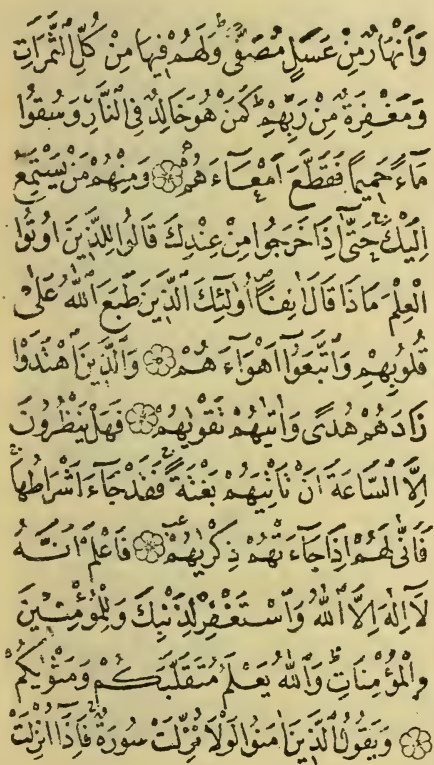 وَأَنْهَارٌ مِنْ عَسَلٍ مُصَفًّى وَلَهُمْ فِيهَا مِنْ كُلِّ الثَّمَرَاتِ
وَمَغْفِرَةٌ مِنْ رَبِّهِمْ كَمَنْ هُوَ خَالِدٌ فِي النَّارِ وَسُقُوا
مَاءً حَمِيمًا فَقَطَّعَ أَمْعَاءَهُمْ ۝ وَمِنْهُمْ مَنْ يَسْتَمِعُ
إِلَيْكَ حَتَّى إِذَا خَرَجُوا مِنْ عِنْدِكَ قَالُوا لِلَّذِينَ أُوتُوا
الْعِلْمَ مَاذَا قَالَ آنِفًا أُولَئِكَ الَّذِينَ طَبَعَ اللَّهُ عَلَى
قُلُوبِهِمْ وَاتَّبَعُوا أَهْوَاءَهُمْ ۝ وَالَّذِينَ اهْتَدَوْا
زَادَهُمْ هُدًى وَآتَيهُمْ تَقْوَيهُمْ ۝ فَهَلْ يَنْظُرُونَ
إِلَّا السَّاعَةَ أَنْ تَأْتِيَهُمْ بَغْتَةً فَقَدْ جَاءَ أَشْرَاطُهَا
فَأَنَّى لَهُمْ إِذَا جَاءَتْهُمْ ذِكْرَيهُمْ ۝ فَاعْلَمْ أَنَّهُ
لَا إِلَهَ إِلَّا اللَّهُ وَاسْتَغْفِرْ لِذَنْبِكَ وَلِلْمُؤْمِنِينَ
وَالْمُؤْمِنَاتِ وَاللَّهُ يَعْلَمُ مُتَقَلَّبَكُمْ وَمَثْوَيكُمْ
۝ وَيَقُولُ الَّذِينَ آمَنُوا لَوْلَا نُزِّلَتْ سُورَةٌ فَإِذَا أُنْزِلَتْ